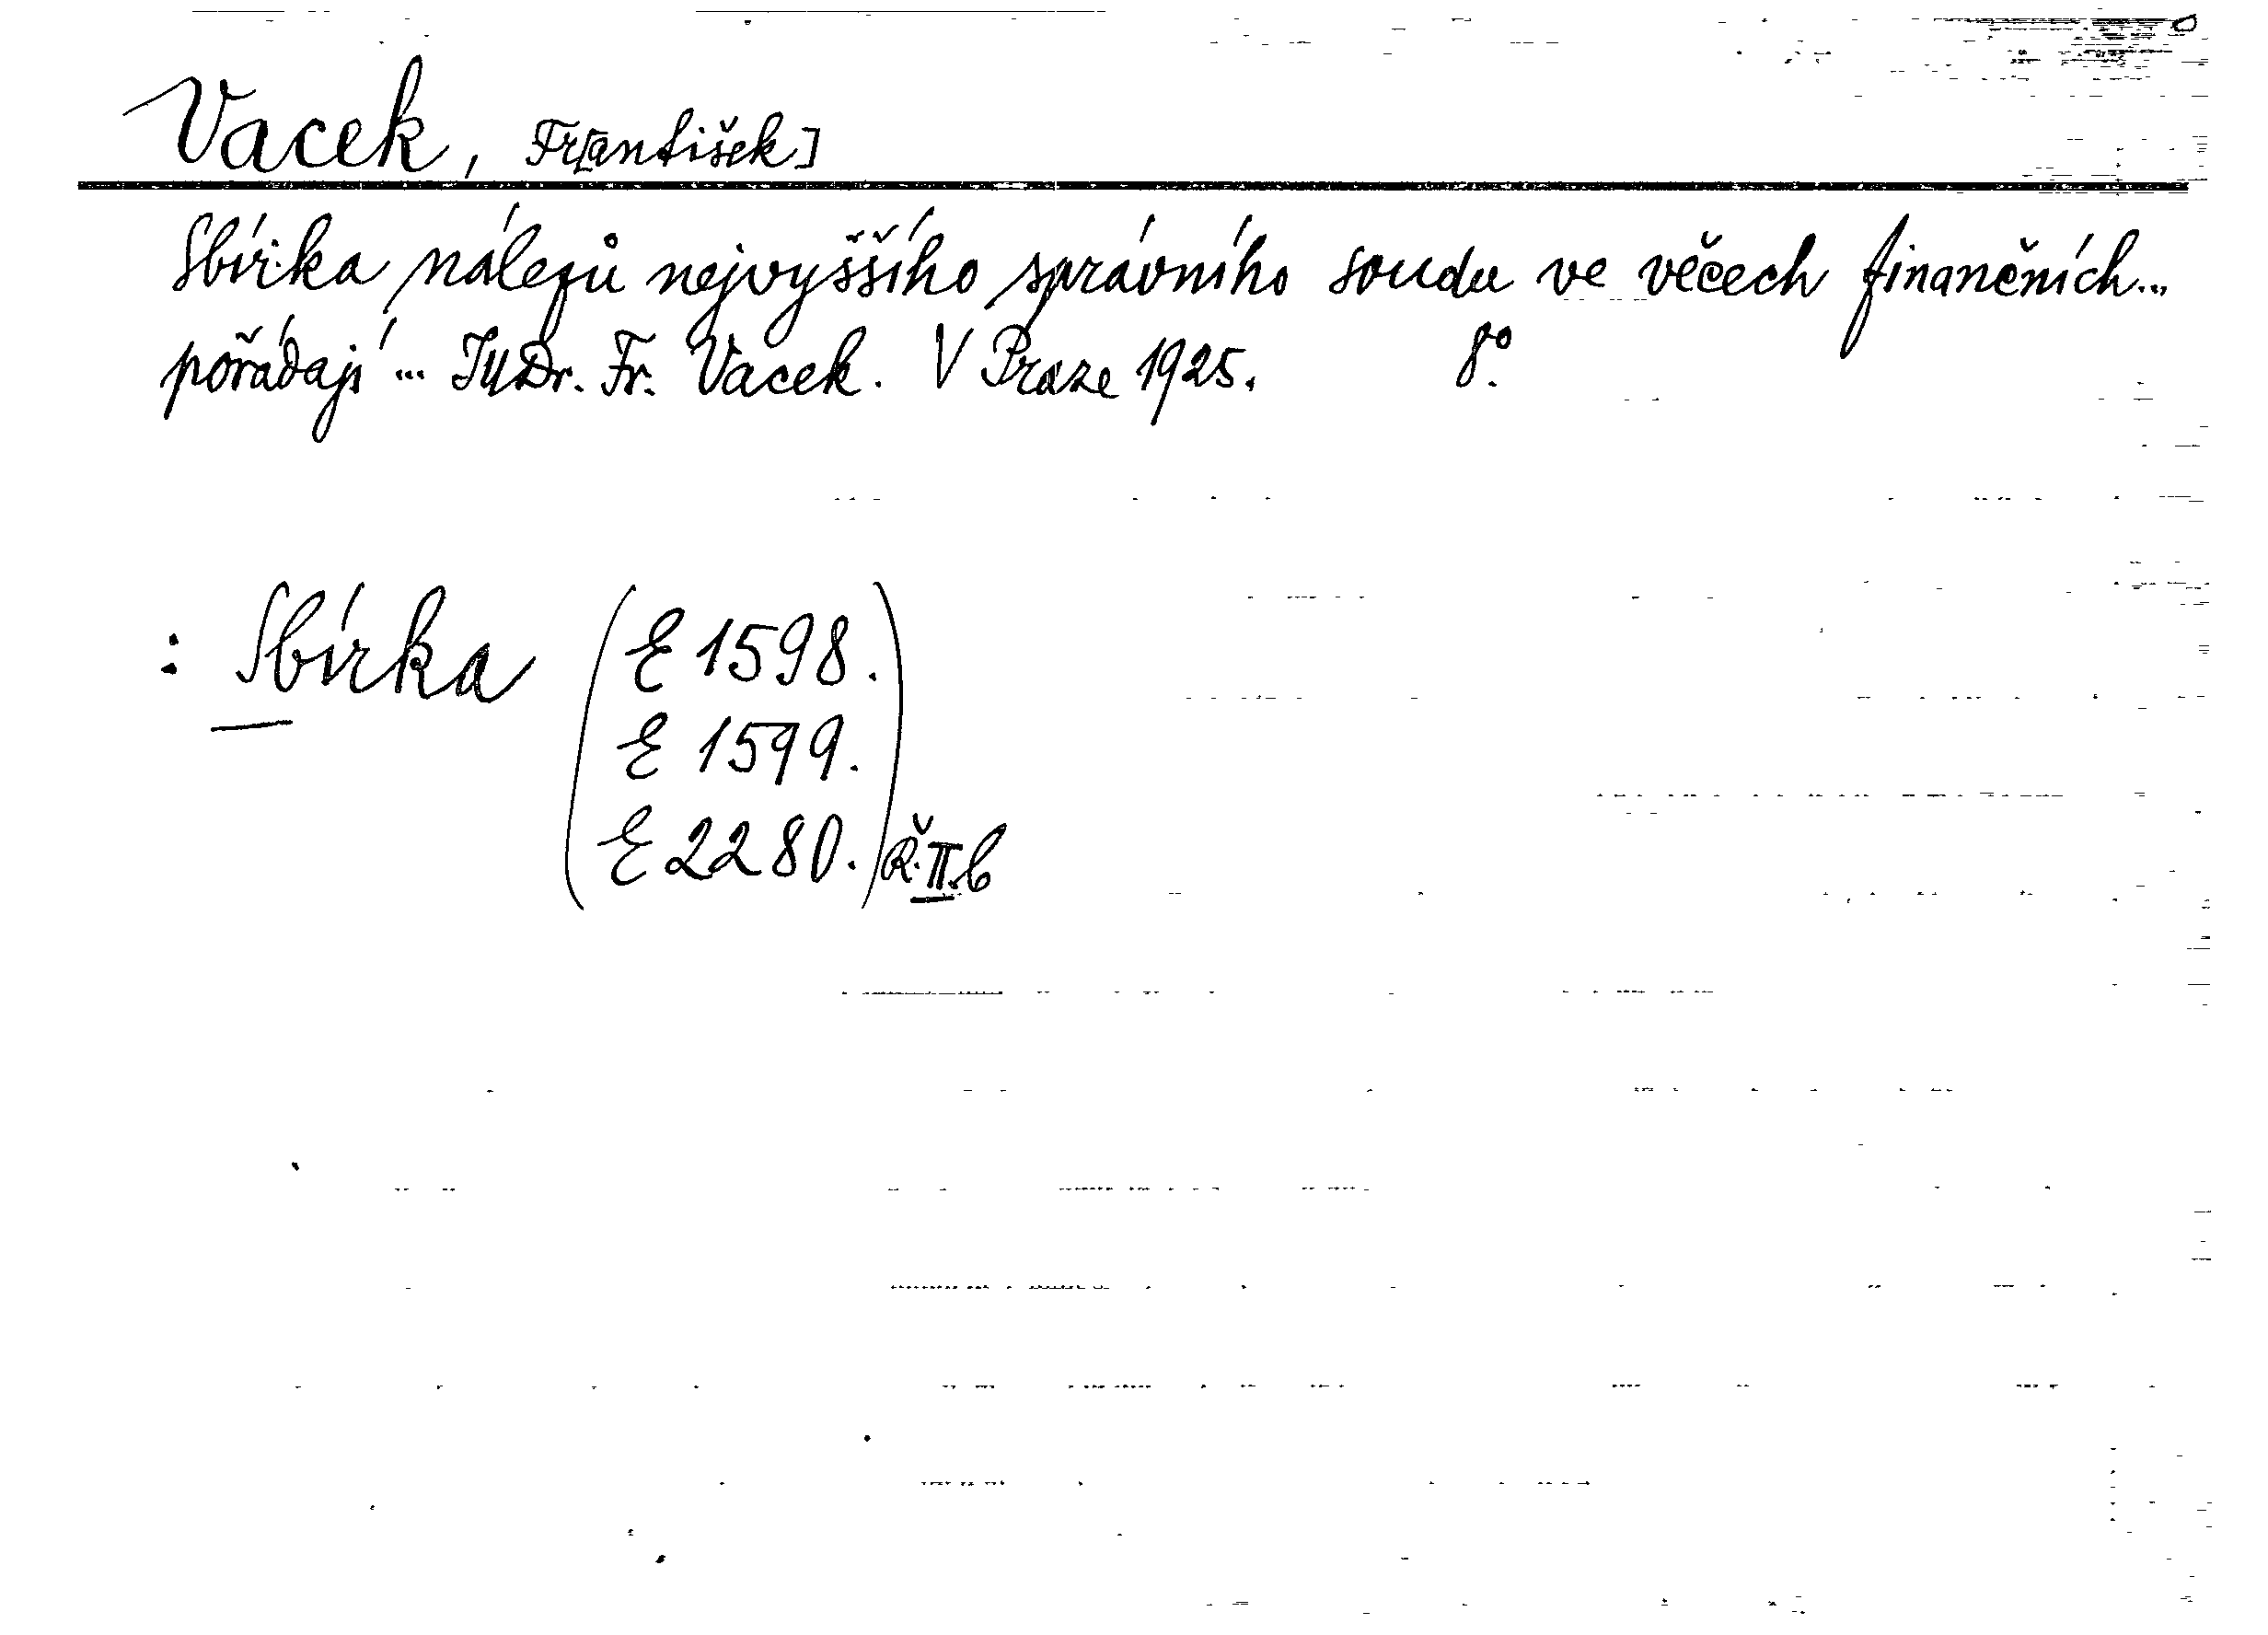 Vacek, Fr[antišek]
Sbírka nálezů nejvyššího správního soudu ve věcech finančních...
pořádají ... JUDr. Fr. Vacek. V Praze 1925. 8°.
: Sbírka (E 1598.
E 1599.
E 2280.) Ř.II.b